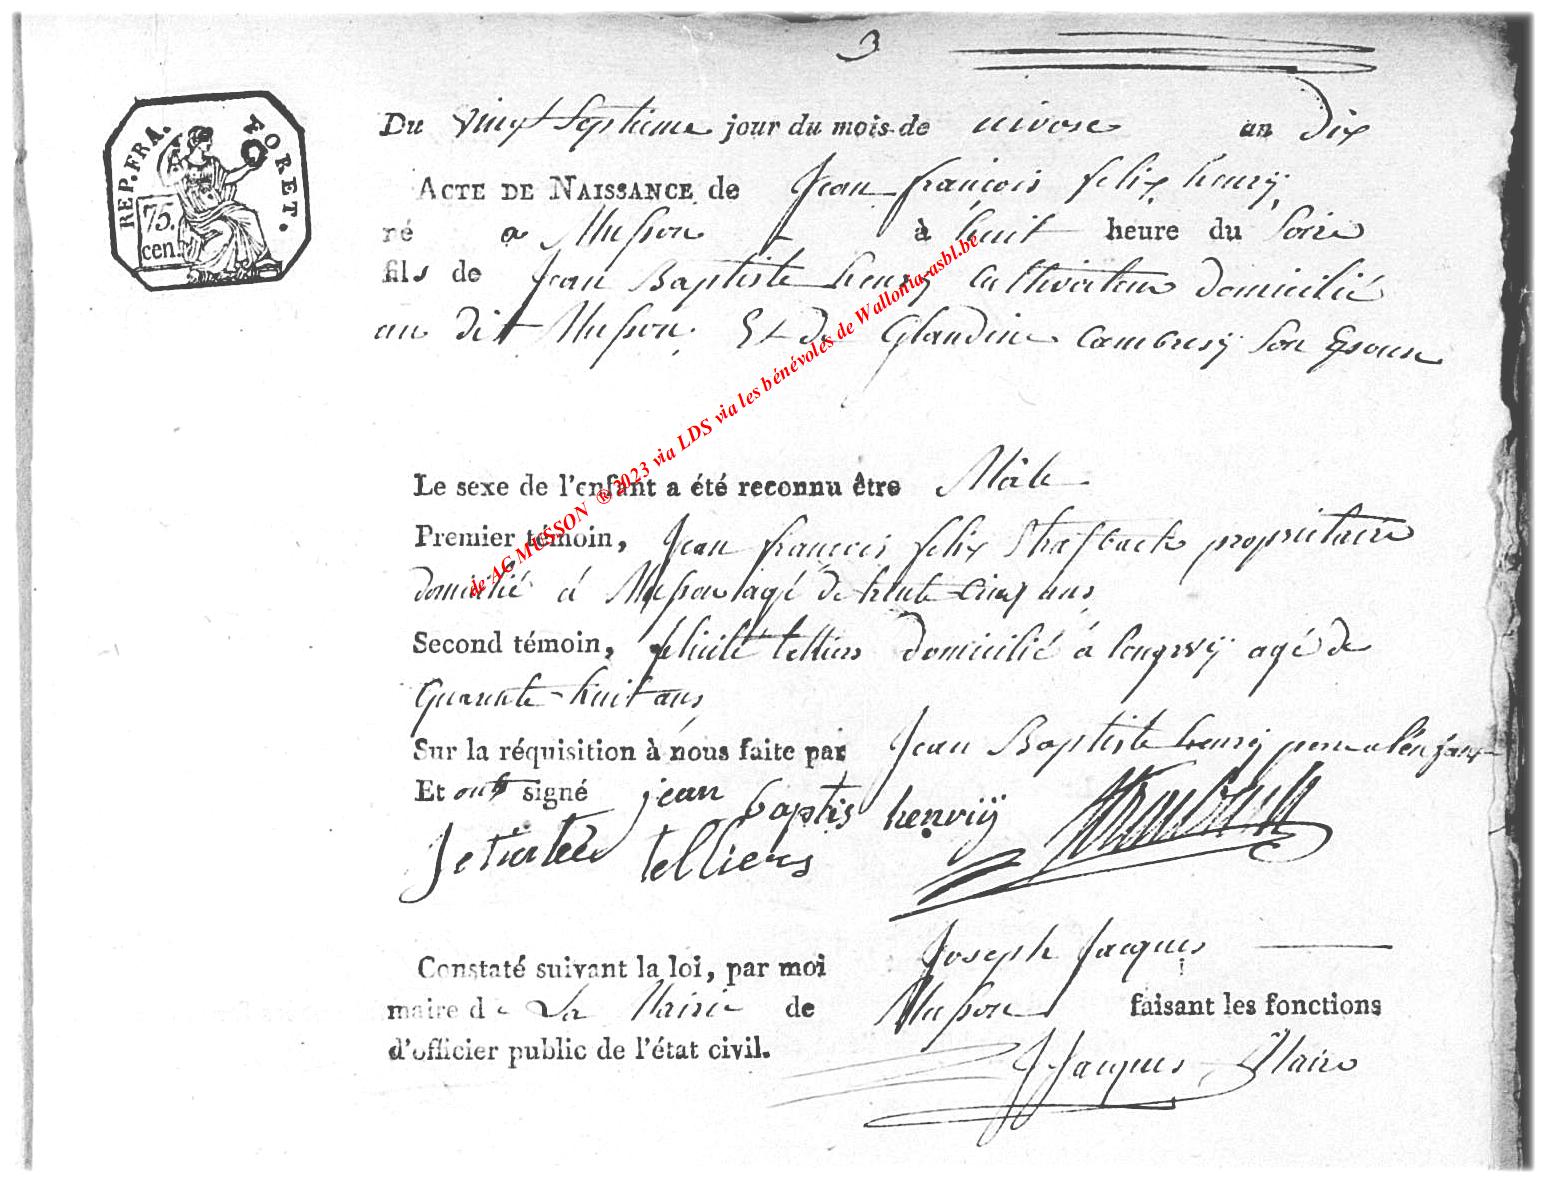 3
REP. FRA. FORET.
75. cen.
Du vingt Septieme jour du mois de nivose an Dix
ACTE DE NAISSANCE de Jean françois felix henrÿ
né a Musson à huit heure du Soire
fils de Jean Baptiste henrÿ Cultivateur domicilié
au dit Musson. Et de Glaudine Cambresÿ Son Epouse
Le sexe de l'enfant a été reconnu être Mâle
Premier témoin, Jean françois felix propriétaire
domicilié à Musson agé de trente Cinq ans
Second témoin, felicité telliers domicilié à longwÿ agé de
Quarante-huit ans
Sur la réquisition à nous faite par Jean Baptiste henrÿ pere a l'enfant
Et ont signé jean baptis henriÿ
telliers
Constaté suivant la loi, par moi Joseph Jacques
maire de La Mairie de Musson faisant les fonctions
d'officier public de l'état civil.
JJacques Maire
de AC MUSSON ® 2023 via LDS via les bénévoles de Wallonia-asbl.be